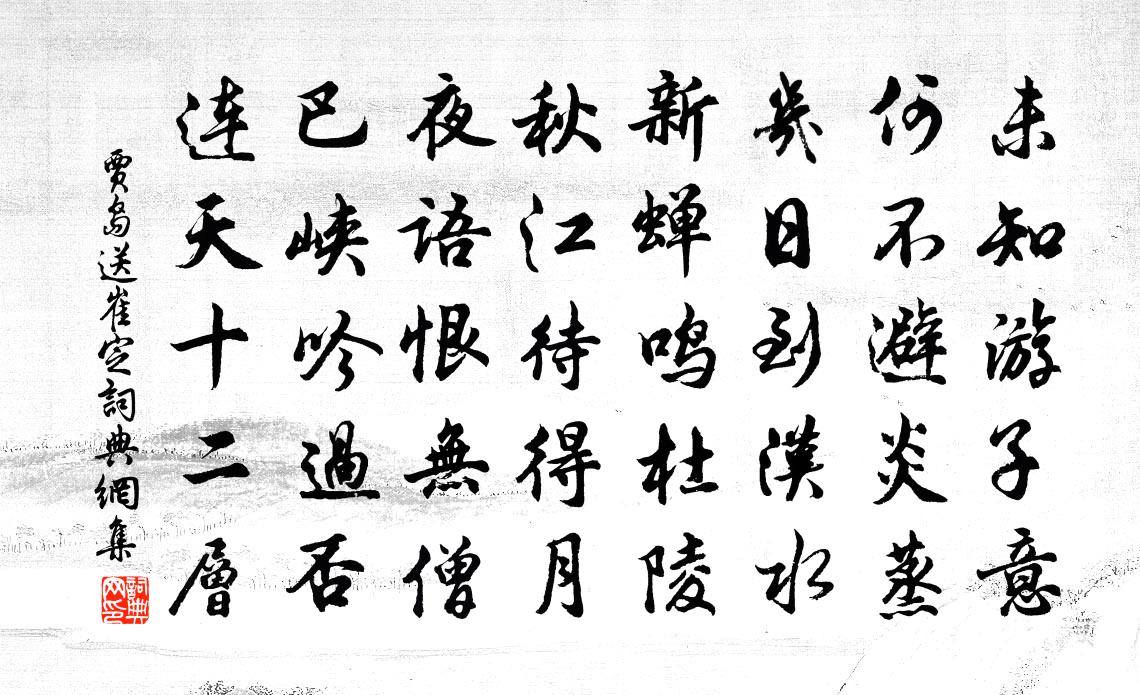 未知游子意
何不避炎蒸
幾日到漢水
新蝉鳴杜陵
秋江待得月
夜語恨無僧
巴峡吟過否
連天十二層
賈島送崔定詞典網集
詞典网印